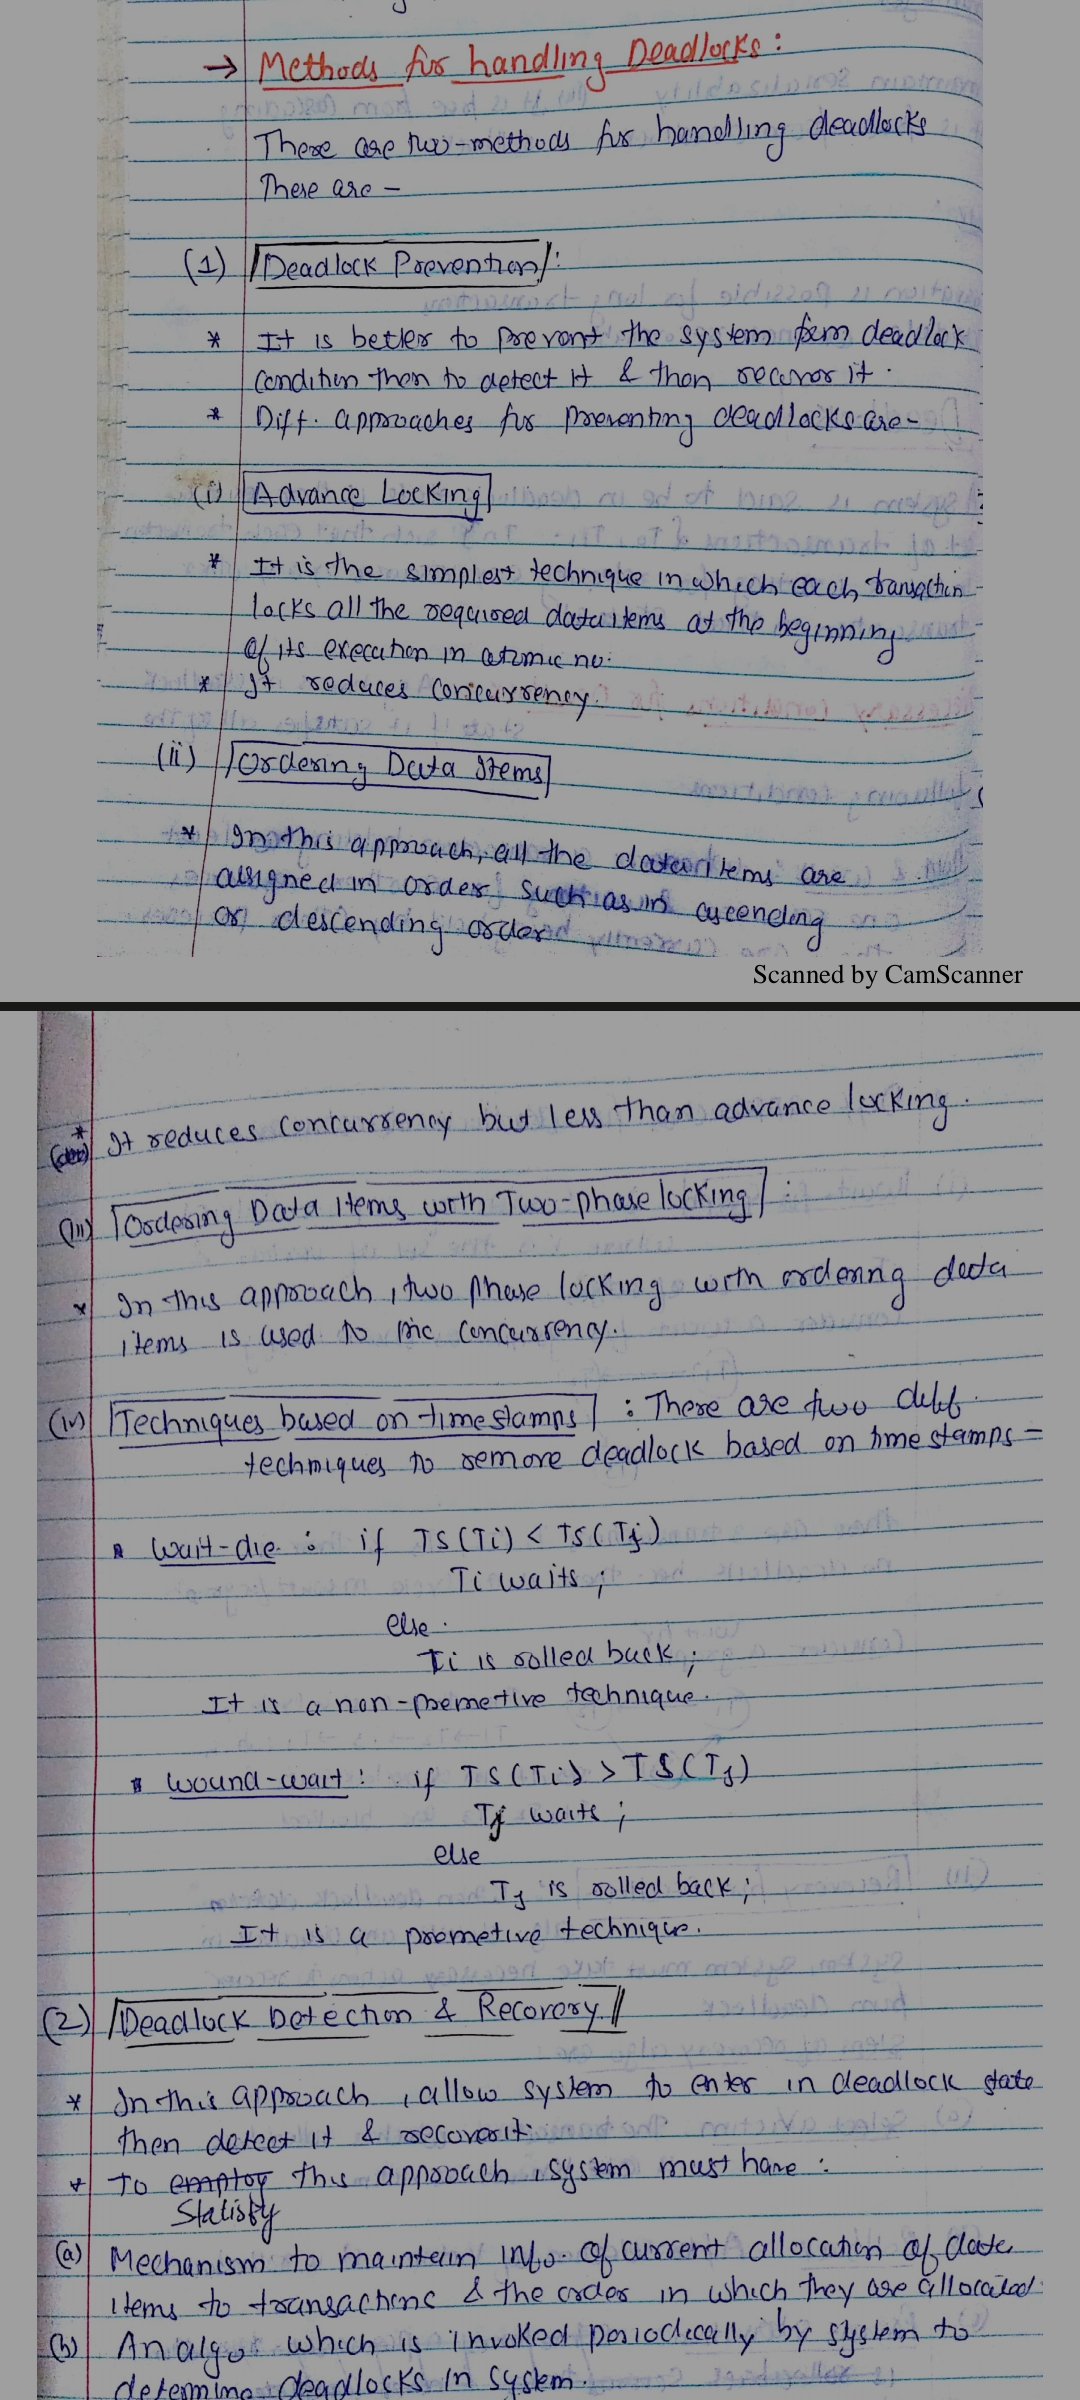 → Methods for handling Deadlocks:
There are two-methods for handling deadlocks
These are -
(1) Deadlock Prevention:
* It is better to prevent the system from deadlock
condition then to detect it & then recover it.
* Diff. approaches for preventing deadlocks are-
(i) Advance Locking
* It is the simplest technique in which each transaction
locks all the required data items at the beginning
of its execution in atomic no.
* It reduces concurrency.
(ii) Ordering Data Items
* In this approach, all the data items are
assigned in order such as in ascending
or descending order
Scanned by CamScanner
* It reduces concurrency but less than advance locking.
(iii) Ordering Data Items with Two-phase locking :
* In this approach, two phase locking with ordering data
items is used to inc concurrency.
(iv) Techniques based on timestamps : There are two diff.
techniques to remove deadlock based on time stamps-
wait-die : if TS(Ti) < TS(Tj)
Ti waits ;
else.
Ti is rolled back ;
It is a non-premetive technique.
wound-wait : if TS(Ti) > TS(Tj)
Tj waits ;
else
Tj is rolled back ;
It is a premetive technique.
(2) Deadlock Detection & Recovery
* In this approach, allow system to enter in deadlock state
then detect it & recover it.
* To employ this approach, system must have :
Statisfy
(a) Mechanism to maintain info. of current allocation of data
items to transactions & the order in which they are allocated.
(b) An algo. which is invoked periodically by system to
determine deadlocks in system.